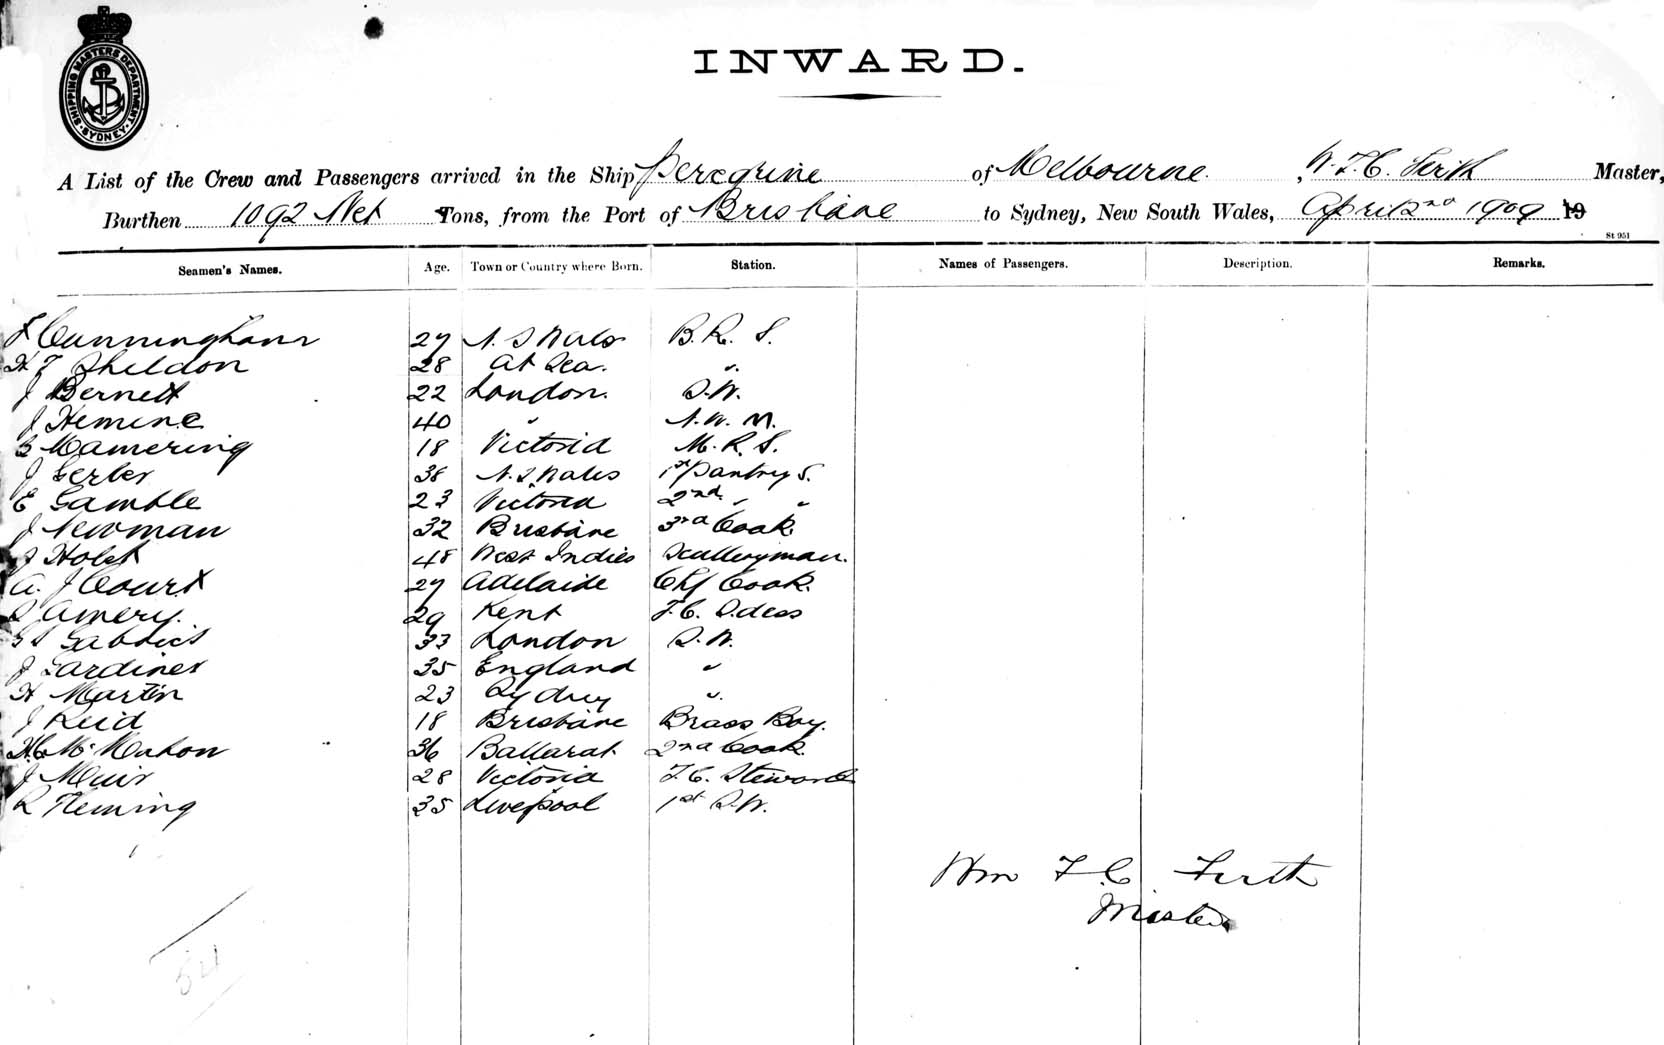 SHIPPING MASTERS DEPARTMENT
SYDNEY
INWARD.
A List of the Crew and Passengers arrived in the Ship Peregrine of Melbourne, W. F. C. Firth Master,
Burthen 1092 Net Tons, from the Port of Brisbane to Sydney, New South Wales, April 2nd 1909 19
St 951
Seamen's Names. Age. Town or Country where Born. Station. Names of Passengers. Description. Remarks.
Cunningham 27 N. S Wales B. R. S.
H F Sheldon 28 At Sea. "
J Bernett 22 London. S. W.
J Hemine 40 " N. W. M.
Mamering 18 Victoria M. R. S.
J Gerler 38 N. S. Wales 1st Pantry S.
E Gamble 23 Victoria 2nd " "
J Newman 32 Brisbane 3rd Cook.
J Holst 48 West Indies Sculleryman.
A. J Court 27 Adelaide Chf Cook.
S Amery. 29 Kent F. C. S.dess
33 London S. W.
J Gardiner 35 England "
H Martin 23 Sydney "
J Reid 18 Brisbane Brass Boy.
H.C. McMahon 36 Ballarat 2nd Cook.
J Muir 28 Victoria F. C. Steward
R Fleming 35 Liverpool 1st S. W.
Wm F. C. Firth
Master
54